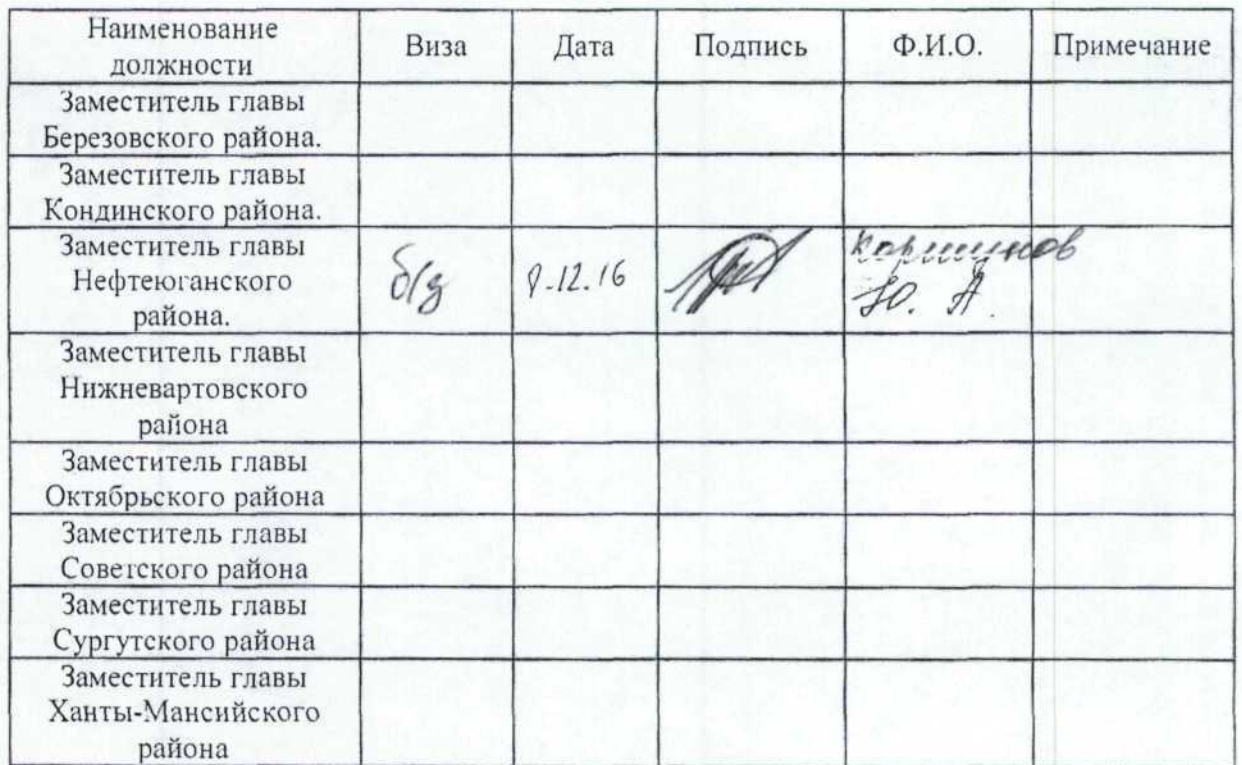 Наименование должности Виза Дата Подпись Ф.И.О. Примечание
Заместитель главы
Березовского района.
Заместитель главы
Кондинского района.
Заместитель главы
Нефтеюганского
района.
б/з
12.16
Ю. А.
Заместитель главы
Нижневартовского
района
Заместитель главы
Октябрьского района
Заместитель главы
Советского района
Заместитель главы
Сургутского района
Заместитель главы
Ханты-Мансийского
района